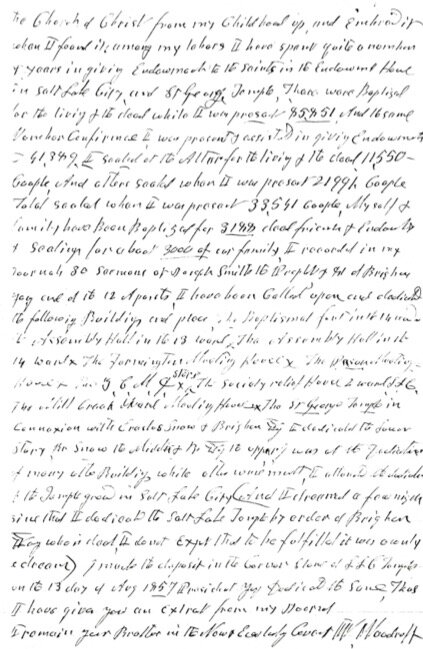 the Church of Christ from my Childhood up, and Embraced it
when I found it, among my labors I have spent quite a number
of years in giving Endowments to the Saints in the Endowment House
in Salt Lake City and St George Temple, There were Baptised
for the living & the dead while I was present 85851 And the same
Number Confirmed I was present & assisted in giving Endowments
I sealed at the Altar for the living & the dead 11550
Couple, And others sealed when I was present 21991 Couple
Total sealed when I was present 33541 Couple, Myself &
family have Been Baptized for 3188 dead friends & Endowed
& Sealings for about 3000 of our family I recorded in my
Journals 30 sermons of Joseph Smith the Prophet & of Brigham
Young one of the 12 Apostles, I have been Called upon and dedicated
the following Buildings and places, The Baptismal font in the 14 ward
The Assembly Hall in the 13 ward, The Assembly Hall in the
14 ward x The Farmington Meeting House x The Meeting
House x The Z C M I x, The society relief House 2 ward SLC,
The Mill Creek Ward Meeting House x The St George Temple in
Connexion with Erastus Snow & Brigham Yg I dedicated the lower
Story Br Snow the Middle & Br Yg the upper, I was at the Dedication
of many other Buildings while others were mouth, I attended the dedication
of the Temple ground in Salt Lake City (and I dreamed a few nights
since that I dedicated the Salt Lake Temple by order of Brigham
Young when dead, I do not Expect that to be fulfilled it was ownly
a dream) I made the deposit in the Corner Stone of S L C Temple
on the 13 day of Aug 1857 President Yg Dedicated the Same, Thus
I have given you an Extract from my Journal
I remain your Brother in the New & Everlasting Covenant W Woodruff